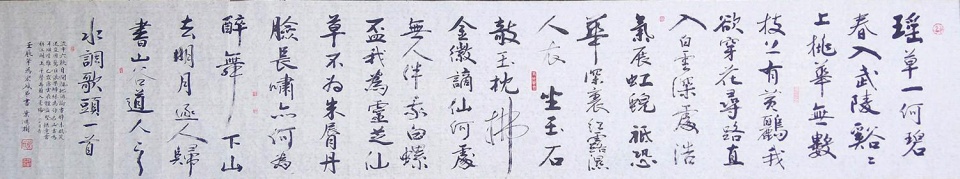 瑤草一何碧
春入武陵谿〻
上桃華無數
枝上有黃鸝我
欲穿花尋路直
入白雲深處浩
氣展虹蜺祗恐
華深裏紅露濕
人衣 坐玉石
敲玉枕拂
金徽謫仙何處
無人伴我白螺
盃我為靈芝仙
草不為朱脣丹
臉長嘯亦何為
醉舞下山
去明月逐人歸
書山谷道人之
水調歌頭一首